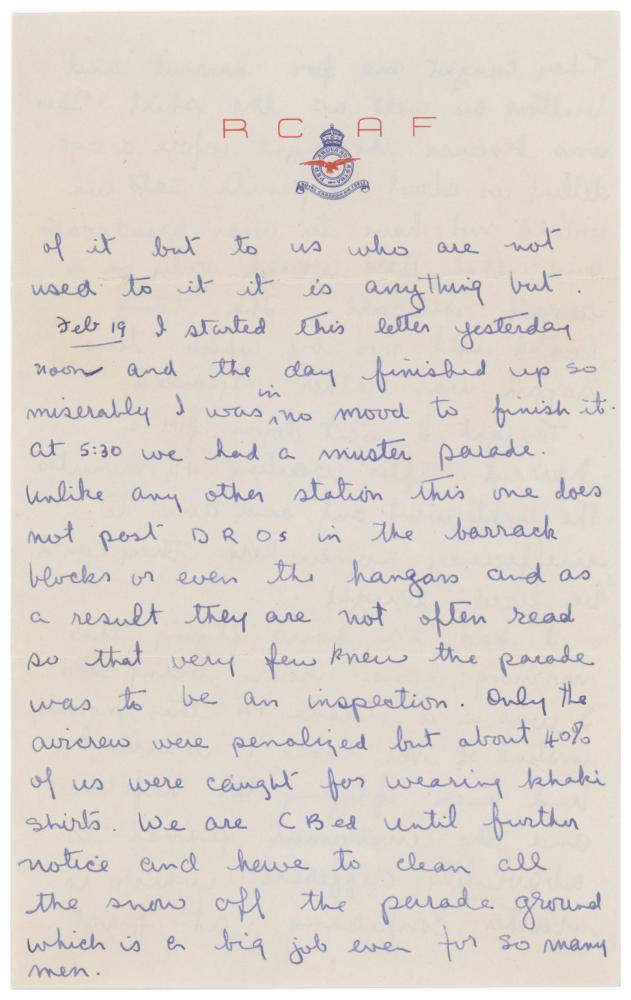 R C A F
of it but to us who are not
used to it it is anything but.
Feb 19 I started this letter yesterday
noon and the day finished up so
miserably I was in no mood to finish it.
At 5:30 we had a muster parade.
Unlike any other station this one does
not post D R Os in the barrack
blocks or even the hangars and as
a result they are not often read
so that very few knew the parade
was to be an inspection. Only the
aircrew were penalized but about 40%
of us were caught for wearing khaki
shirts. We are CBed until further
notice and have to clean all
the snow off the parade ground
which is a big job even for so many
men.